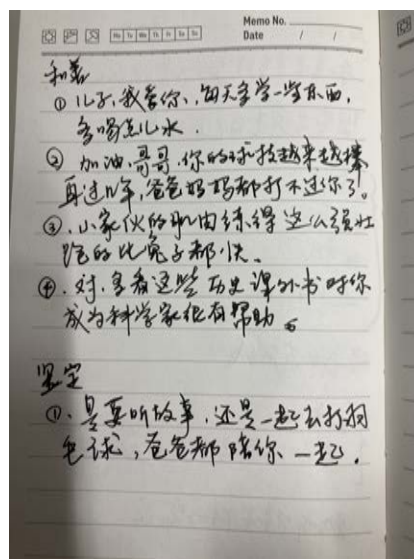 Memo No.
Mo Tu We Th Fr Sa Su
Date / /
和善
① 儿子,我爱你,每天多学一些东西,
多喝点儿水.
② 加油,哥哥.你的球技越来越棒
再过几年,爸爸妈妈都打不过你了.
③.小家伙的肌肉练得这么强壮
跑的比兔子都快.
④.对.多看这些历史课外书对你
成为科学家很有帮助。
坚定
①.是要听故事,还是一起去打羽
毛球,爸爸都陪你一起.